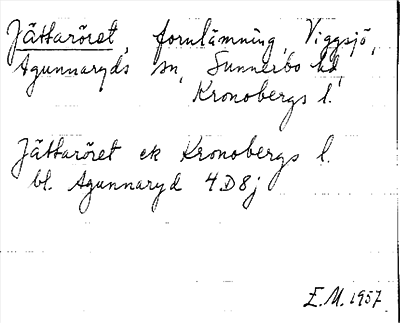 Jättaröret, fornlämning, Viggsjö,
Agunnaryds sn, Sunnerbo hd,
Kronobergs l.
Jättaröret ek Kronobergs l.
bl. Agunnaryd 4D8j
E.M. 1957